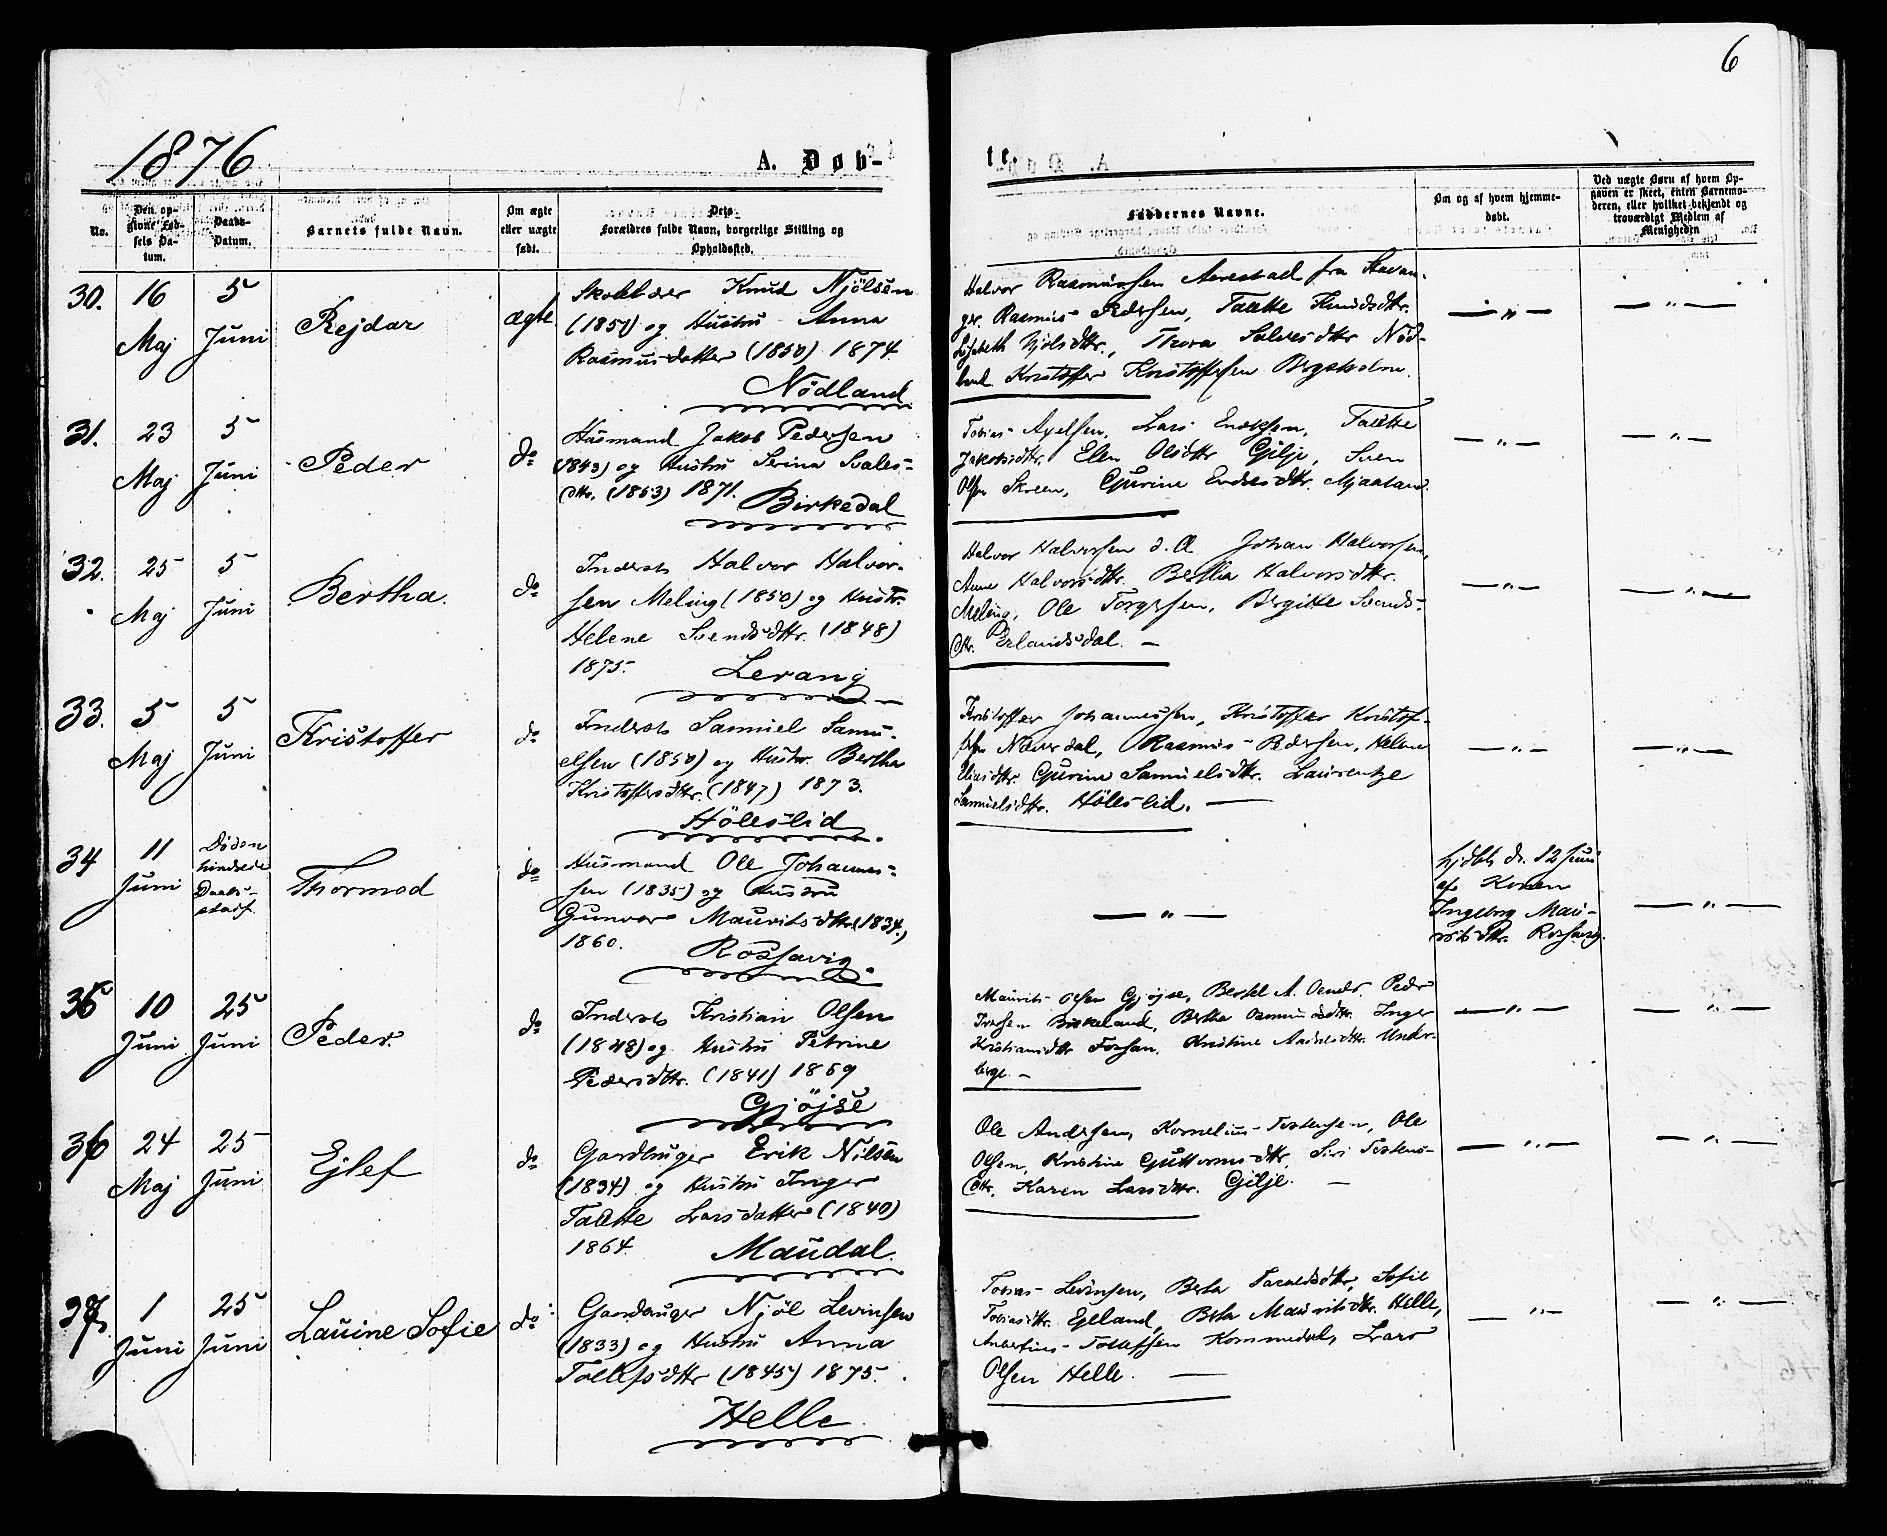 6
1876
A. Døb-
te.
No.
Den op-
givne Fød-
sels Da-
tum.
Daabs-
Datum.
Barnets fulde Navn.
Om ægte
eller uægte
født.
Dets
Forældres fulde Navn, borgerlige Stilling og
Opholdssted.
Faddernes Navne.
Om og af hvem hjemme-
døbt.
Ved uægte Børn af hvem Op-
gaven er skeet, enten Barnemo-
deren, eller hvilket bekjendt og
troværdigt Medlem af
Menigheden
30. 16 Maj
5 Juni
Rejdar
ægte
Knud Njölsen
(1850) og Hustru Anna
Rasmusdatter (1850) 1874
Nødland
Halvor Rasmussen fra Stavan-
ger. Rasmus Pedersen, Taatte Knudsdtr.
Lisebeth Njölsdtr., Thora Salvesdtr Nød-
land Kristoffer Kristoffersen Bergsholm.
— " —
— " —
31. 23 Maj
5 Juni
Peder
do
Husmand Jakob Pedersen
(1843) og Hustru Serina Svales-
dtr. (1853) 1871.
Birkedal
Tobias Axelsen, Lars Endresen, Taatte
Jakobsdtr. Elen Olsdtr Gilje, Sven
Olsen Skreen, Gurine Endresdtr. Mjaaland.
— " —
— " —
32. 25 Maj
5 Juni
Bertha.
do
Inderst Halvor Halvor-
sen Meling (1850) og Hustr.
Helene Svendsdtr. (1848)
1875.
Lerang
Halvor Halvorsen d. Æ Johan Halvorsen,
Anne Halvorsdtr. Bertha Halvorsdtr.
Meling, Ole Torgersen, Bergitte Svends-
dtr. Erlandsdal. —
— " —
— " —
33. 5 Maj
5 Juni
Kristoffer
do
Inderst Samuel Samu-
elsen (1850) og Hustr. Bertha
Kristoffersdtr. (1847) 1873.
Höleslid
Kristoffer Johannessen, Kristoffer Kristof-
fersen Næverdal, Rasmus Pedersen, Helene
Eliasdtr. Gurine Samuelsdtr. Laurentze
Samuelsdtr. Höleslid. —
— " —
— " —
34 11 Juni
Døden
hindrede
Daabs-
stadf.
Thormod
do
Husmand Ole Johannes-
sen (1835) og Hustru
Gunvor Mauritsdtr (1834,)
1860.
Rossavig.
— " —
hjdbt d. 12 Juni
af Konen
Ingeborg Mau-
ritsdtr. Rossavig.
— " —
35 10 Juni
25 Juni
Peder.
do
Inderst Kristian Olsen
(1848) og Hustru Petrine
Pedersdtr. (1841) 1869
Gjöjse
Maurits Olsen Gjöjse, Bertel A. Peder
Iversen Birkeland, Bertha Inger
Kristiansdtr Fossan, Kristine Under-
berge. —
— " —
— " —
36 24 Maj
25 Juni
Ejlef
do
Gardbruger Erik Nilsen
(1834) og Hustru Inger
Taatte Larsdatter (1840)
1864.
Maudal.
Ole Andersen, Kornelius Tostensen, Ole
Olsen, Kristine Guttormsdtr. Siri Tostens-
dtr. Karen Larsdtr. Gilje. —
— " —
— " —
37. 1 Juni
25 Juni
Lauine Sofie
do
Gardbruger Njöl Levinsen
(1833) og Hustru Anna
Tollefsdtr (1845) 1875.
Helle
Tobias Levinsen, Berta Sofie
Tobiasdtr. Ejeland, Berta Mauritsdtr. Helle,
Tollefsen Kommedal, Lars
Olsen Helle. —
— " —
— " —